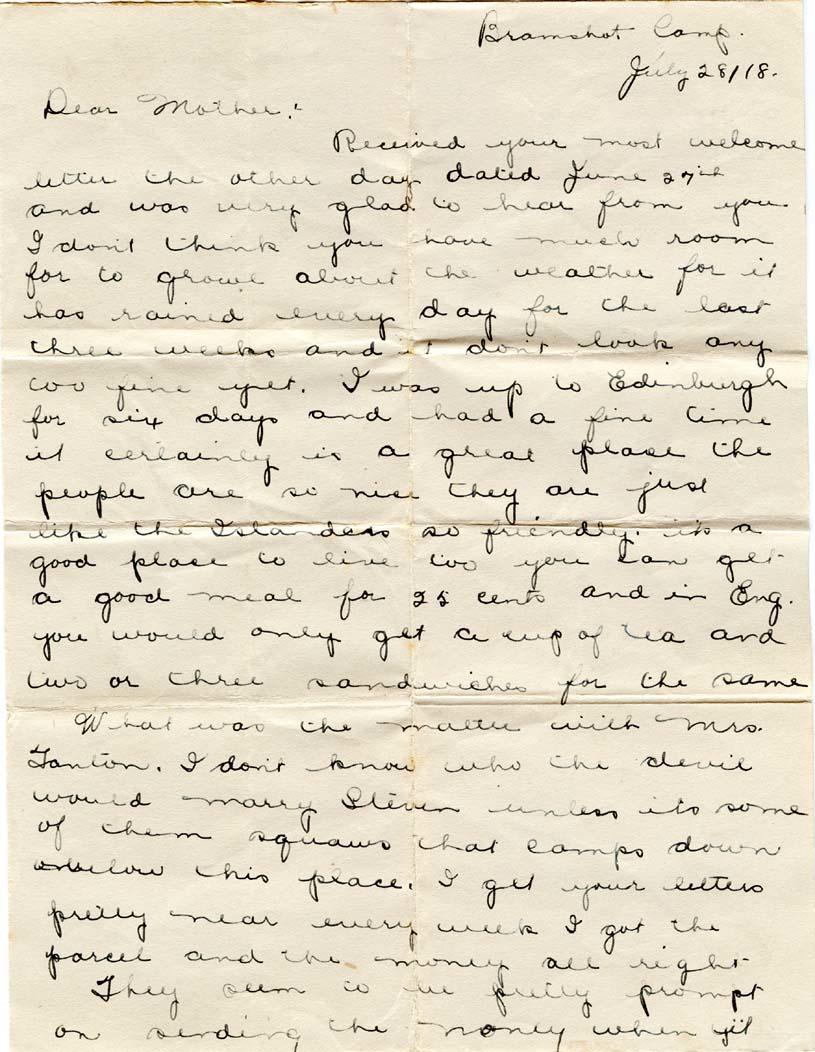 Bramshot Camp.
July 28/18.
Dear Mother:
Received your most welcome
letter the other day dated June 27th
and was very glad to hear from you.
I don't think you have much room
for to growl about the weather for it
has rained every day for the last
three weeks and it don't look any
too fine yet. I was up to Edinburgh
for six days and had a fine time
it certainly is a great place the
people are so nice they are just
like the Islanders so friendly. it's a
good place to live too you can get
a good meal for 25 cents and in Eng.
you would only get a cup of tea and
two or three sandwiches for the same
What was the matter with Mrs.
Tanton. I don't know who the devil
would marry Steven unless its some
of them squaws that camps down
below this place. I get your letters
pretty near every week I got the
parcel and the money all right
They seem to be pretty prompt
on sending the money when